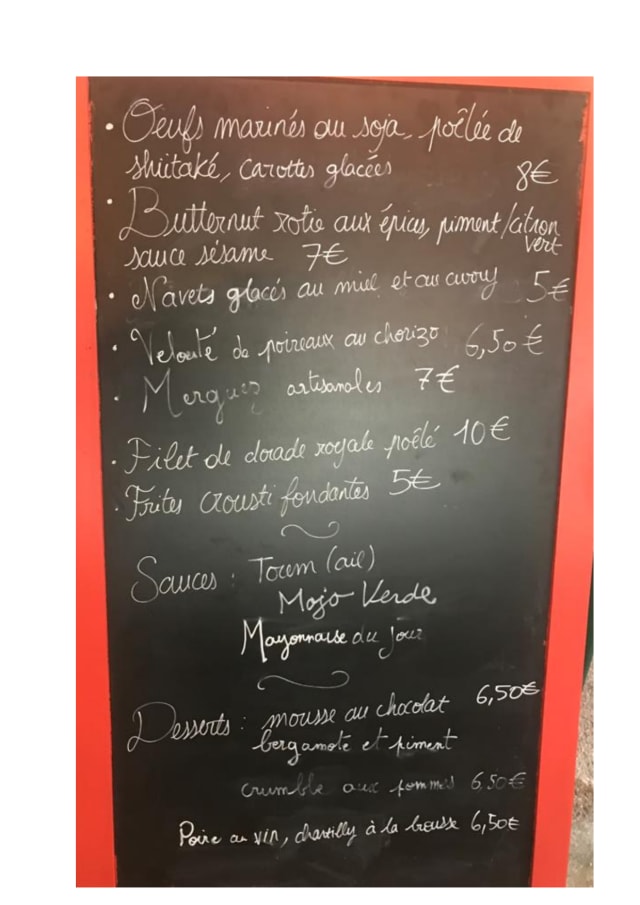 • Oeufs marinés au soja, poêlée de
shiitaké, carottes glacées 8€
• Butternut rotie aux épices, piment/citron
vert
sauce sésame 7€
• Navets glacés au miel et au curry 5€
• Velouté de poireaux au chorizo 6,50€
• Merguez artisanales 7€
• Filet de dorade royale poêlé 10€
• Frites crousti fondantes 5€
Sauces : Toum (ail)
Mojo Verde
Mayonnaise du jour
Desserts : mousse au chocolat 6,50€
bergamote et piment
crumble aux pommes 6,50€
Poire au vin, chantilly à la brousse 6,50€